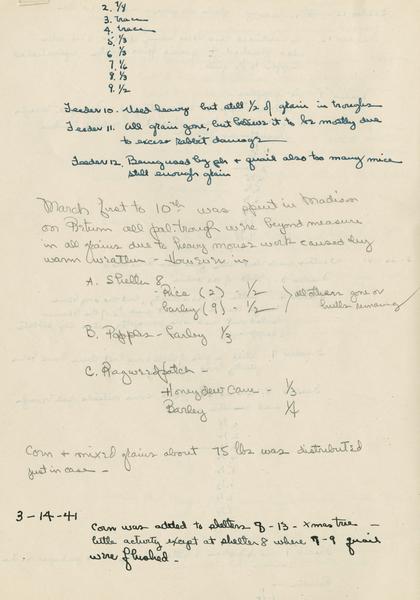 2. 7/8
3. trace
4. trace
5. 1/3
6. 1/3
7. 1/6
8. 1/3
9. 1/2
Feeder 10. Used heavy but still 1/2 of grain in troughs
Feeder 11. All grain gone, but believe it to be mostly due
to excess rabbit damage
Feeder 12. Being used by ph + quail also too many mice
still enough grain
March first to 10th was spent in Madison
on Return all trough were beyond measure
in all grains due to heavy mouse work caused by
warm weather - However in
A. Shelter 8
Rice (2) - 1/2
barley (9) - 1/2
all others gone or
hulls remaining
B. Popples - barley 1/3
C. Ragweed patch -
Honeydew Cane - 1/3
Barley 1/4
Corn + mixed grains about 75 lbs was distributed
just in case -
3-14-41
Corn was added to shelters 8 - 13 - xmas tree -
little activity except at shelter 8 where 7-9 quail
were flushed -